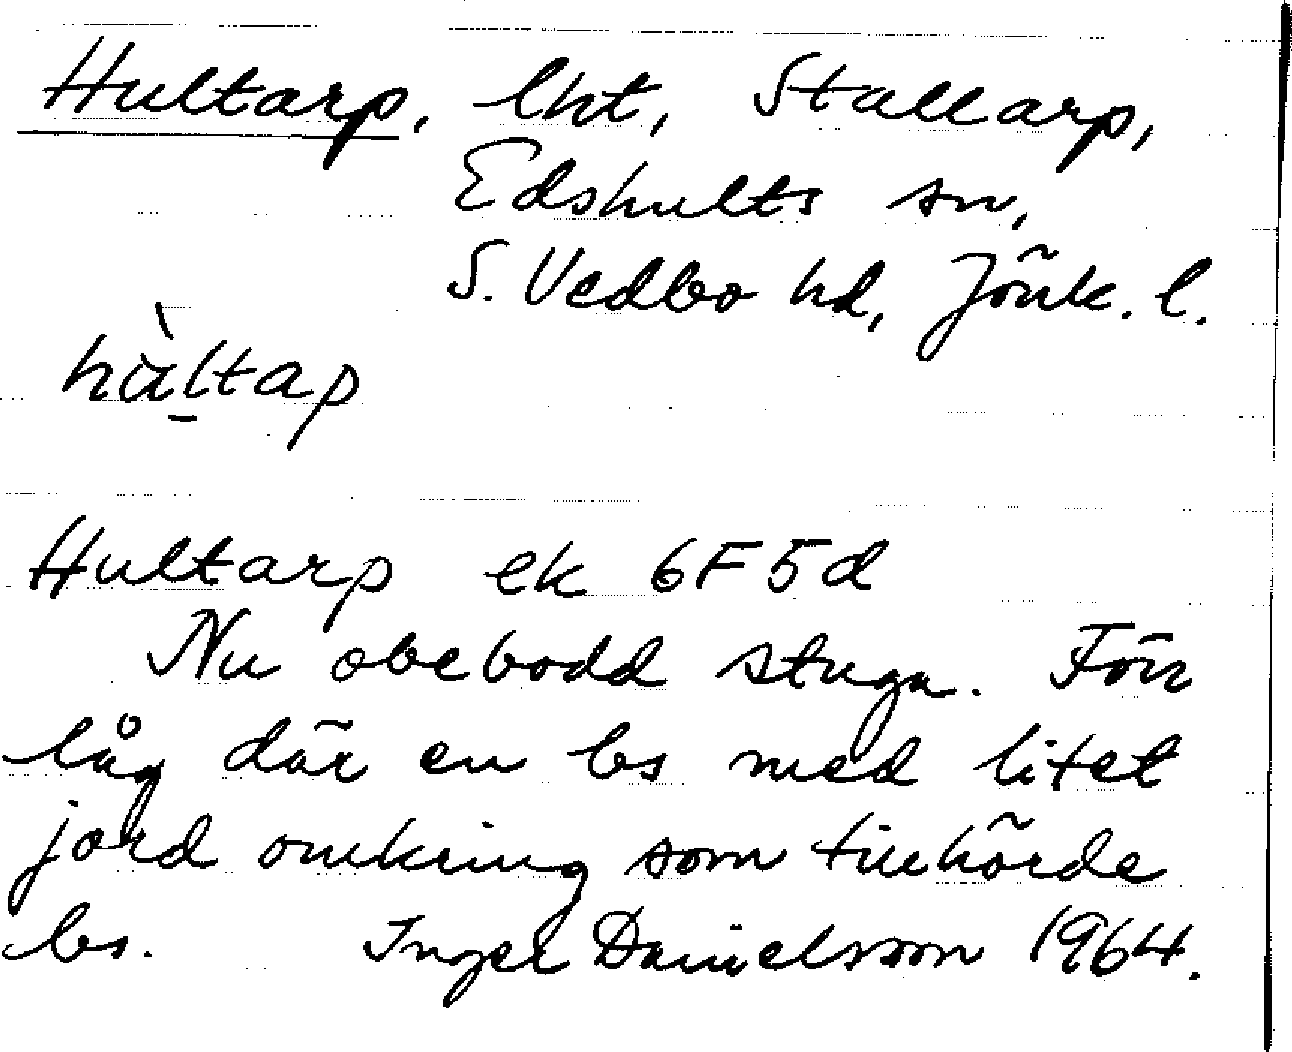 Hultarp, lht, Stallarp,
Edshults sn,
S. Vedbo hd, Jönk. l.
hàltap
Hultarp ek 6F5d
Nu obebodd stuga. Förr
låg där en bs med litet
jord omkring som tillhörde
bs. Inger Danielsson 1964.